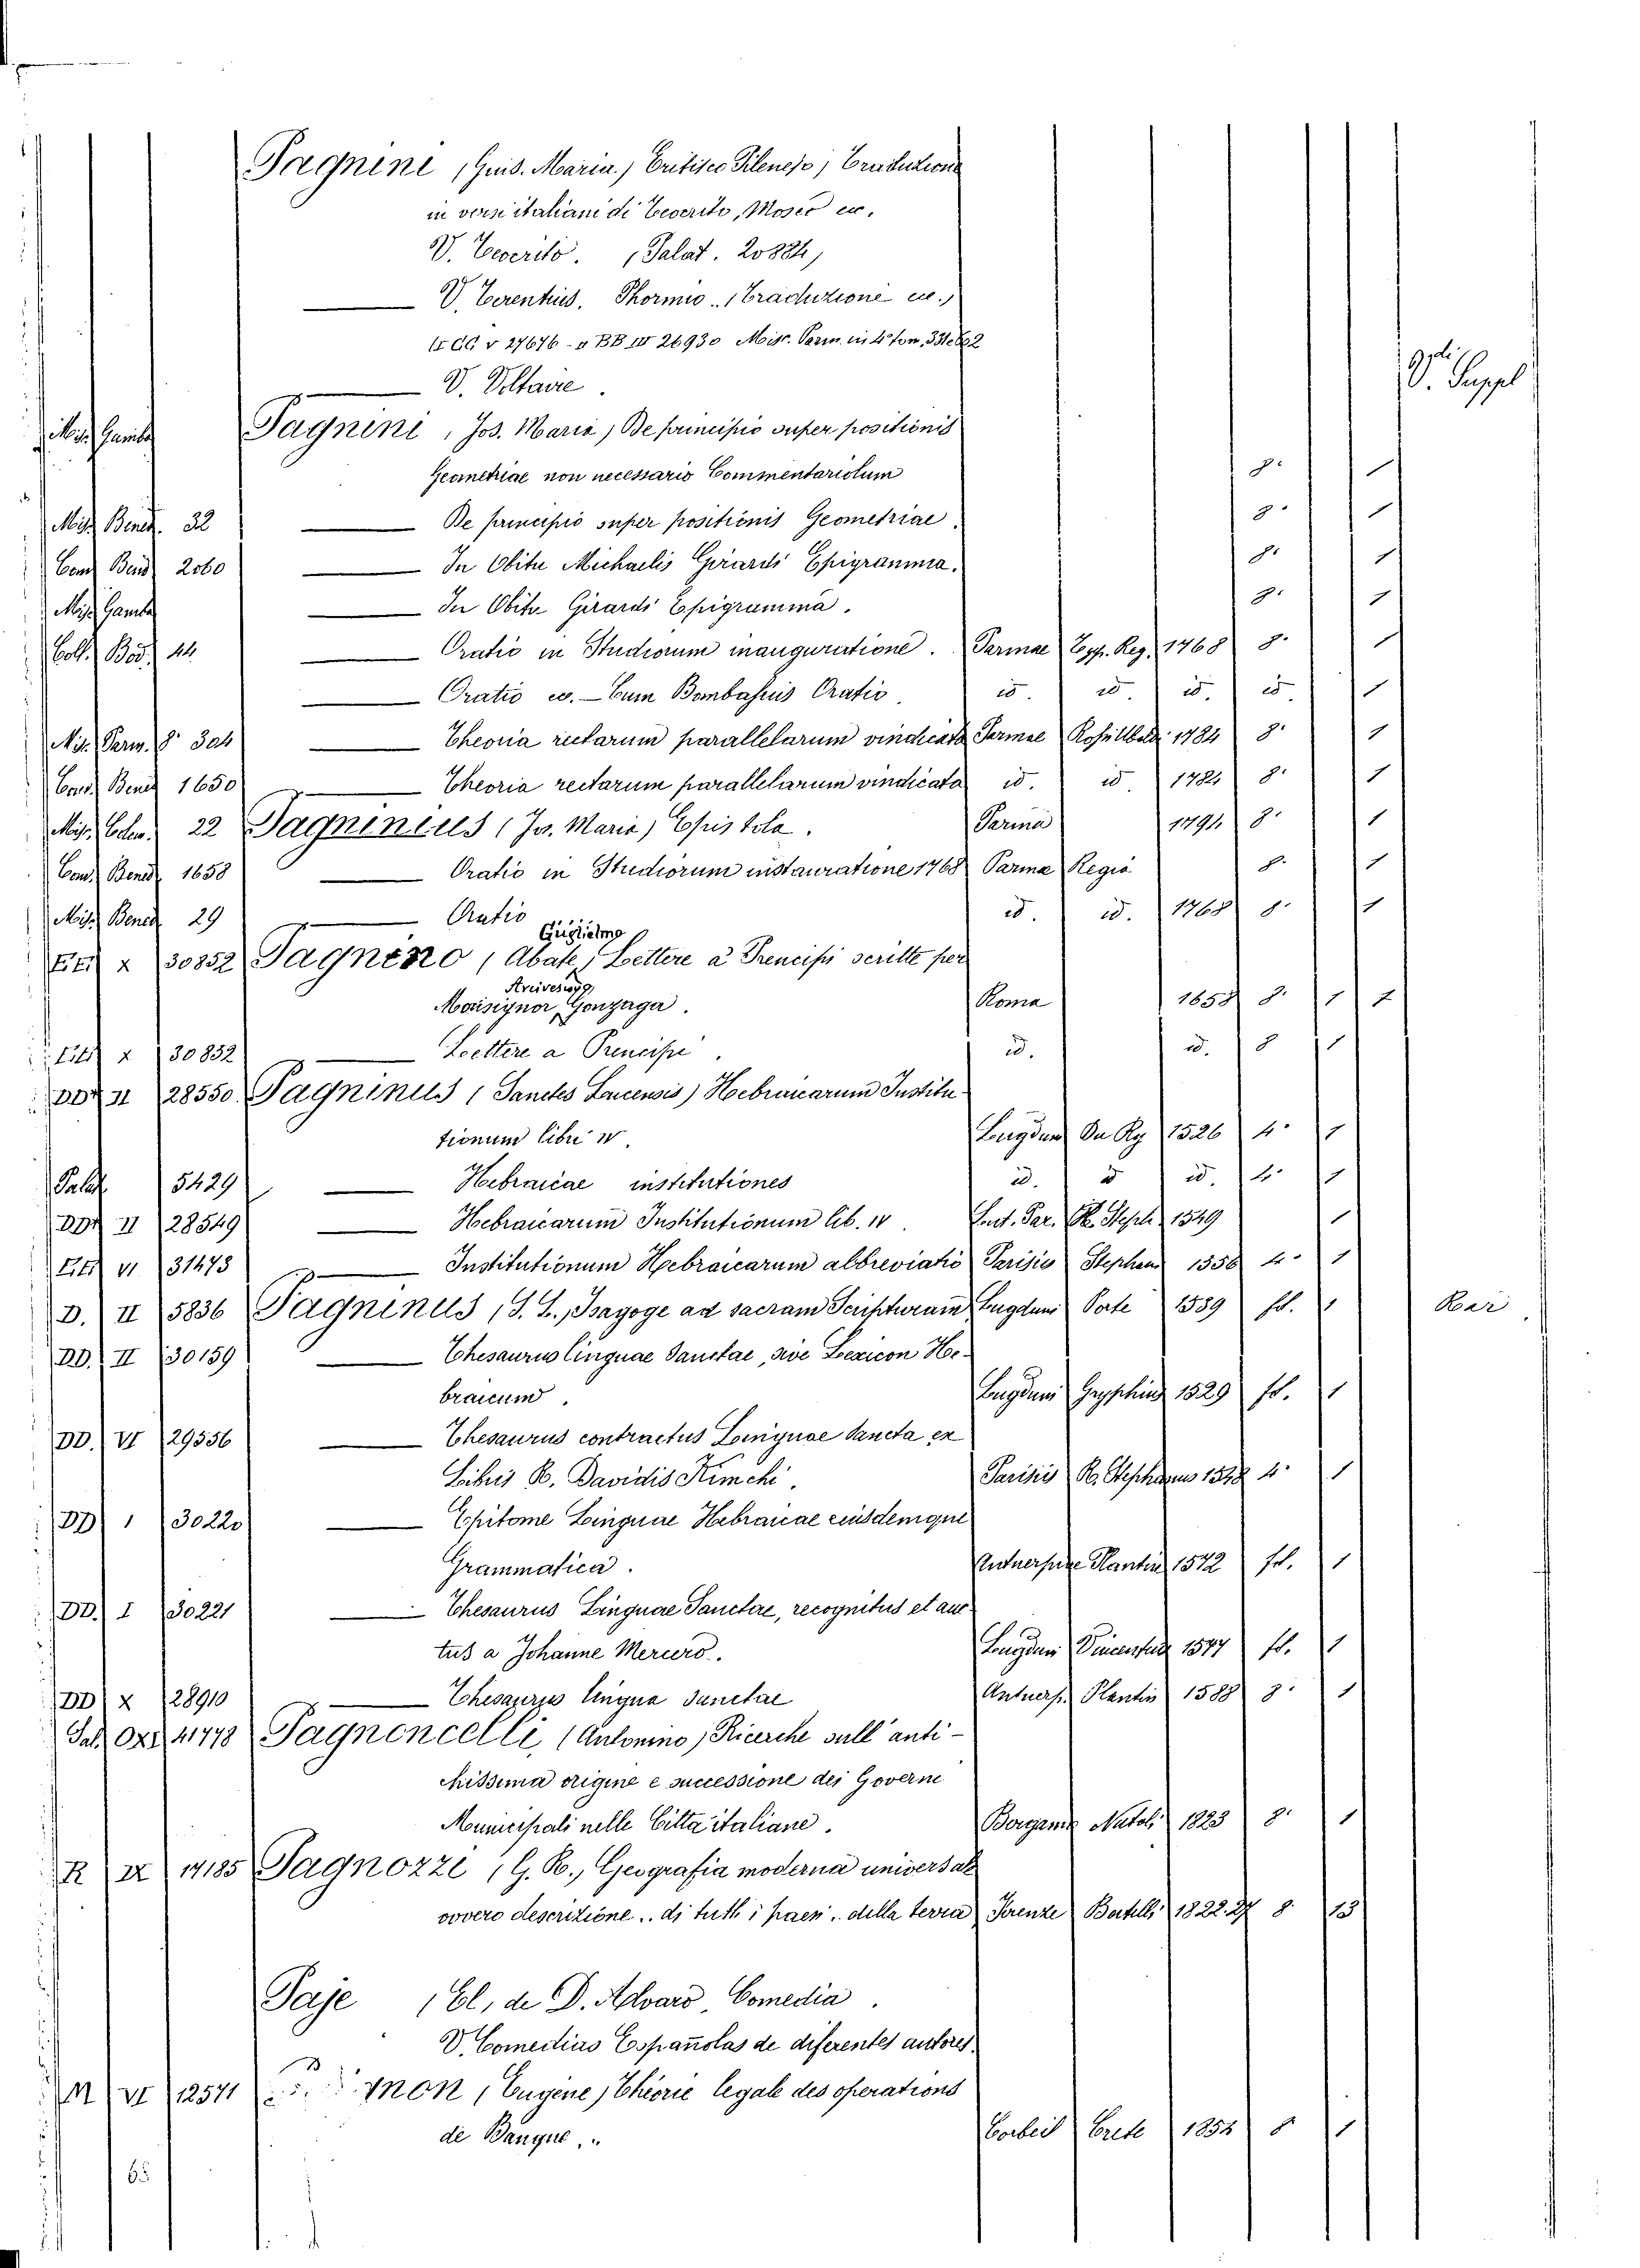 Pagnini (Gius. Maria) Eritisco Pilenejo, Traduzione
in versi italiani di Teocrito, Mosco ec.
V. Teocrito. (Palat. 20884)
V. Terentius. Phormio. (Traduzione ec.)
V 27676 - BB IV 26930 Misc. Parm. in 4° tom.
V. Voltaire.
V. Suppl
Misc. Gamba Pagnini, Jos. Maria, De principio super positionis
Geometriae non necessario Commentariolum 8. 1
Misc. Bened. 32 De principio super positionis Geometriae. 8. 1
Com. Bened. 2060 In Obitu Michaelis Girardi Epigramma. 8. 1
Misc. Gamba In Obitu Girardi Epigramma. 8. 1
Coll. Bod. 44 Oratio in Studiorum inauguratione. Parmae Typ. Reg. 1768 8. 1
Oratio ec. - Cum Bombasius Oratio id. id. id. id. 1
Mis. Parm. 8° 304 Theoria rectarum parallelarum vindicata Parmae 1784 8. 1
Com. Bened. 1650 Theoria rectarum parallelarum vindicata id. id. 1784 8. 1
Misc. 22 Pagninius (Jos. Maria) Epistola. Parma 1794 8. 1
Com. Bened. 1658 Oratio in Studiorum instauratione 1768 Parma Regia 8. 1
Misc. Bened. 29 Oratio id. id. 1768 8. 1
Guglielmo
X 30852 Pagnino (Abate) Lettere a Prencipi scritte per
Arcivescovo
Monsignor Gonzaga. Roma 1658 8. 1
X 30852 Lettere a Prencipi. id. id. 8 1
DD. II 28550 Pagninus (Sanctes Lucensis) Hebraicarum Institu-
tionum libri IV. Lugduni Du Ry 1526 4. 1
Palat. 5429 Hebraicae institutiones id. id. id. 4. 1
DD. II 28549 Hebraicarum Institutionum lib. IV. Lut. Par. R. Steph. 1549 1
VI 31473 Institutionum Hebraicarum abbreviatio Parisiis Stephani 1556 4. 1
D. II 5836 Pagninus, S. L., Isagoge ad sacram Scripturam Lugduni Porte 1539 fol. 1
Rar
DD. II 30159 Thesaurus linguae Sanctae, sive Lexicon He-
braicum. Lugduni Gryphius 1529 fol. 1
DD. VI 29336 Thesaurus contractus Linguae Sancta ex
Libris R. Davidis Kimchi. Parisiis R. Stephanus 1548 4. 1
DD I 30220 Epitome Linguae Hebraicae eiusdemque
Grammatica. Antuerpiae Plantin 1572 fol. 1
DD. I 30221 Thesaurus Linguae Sanctae, recognitus et auc-
tus a Johanne Mercero. Lugduni 1577 fol. 1
DD X 28910 Thesaurus lingua Sanctae Antuerp. Plantin 1588 8. 1
41778 Pagnoncelli, (Antonino) Ricerche sull'anti-
chissima origine e successione dei Governi
Municipali nelle Città italiane. Bergamo Natali 1823 8. 1
R IX 14185 Pagnozzi, G. R., Geografia moderna universale
ovvero descrizione.. di tutti i paesi.. della terra Firenze Batelli 1822.27 8. 13
Paje (El, de D. Alvaro, Comedia.
V. Comedias Españolas de diferentes autores.
M VI 12571 mon, (Eugène) Théorie légale des opérations
de Banque.. Corbeil Crete 1854 8 1
65